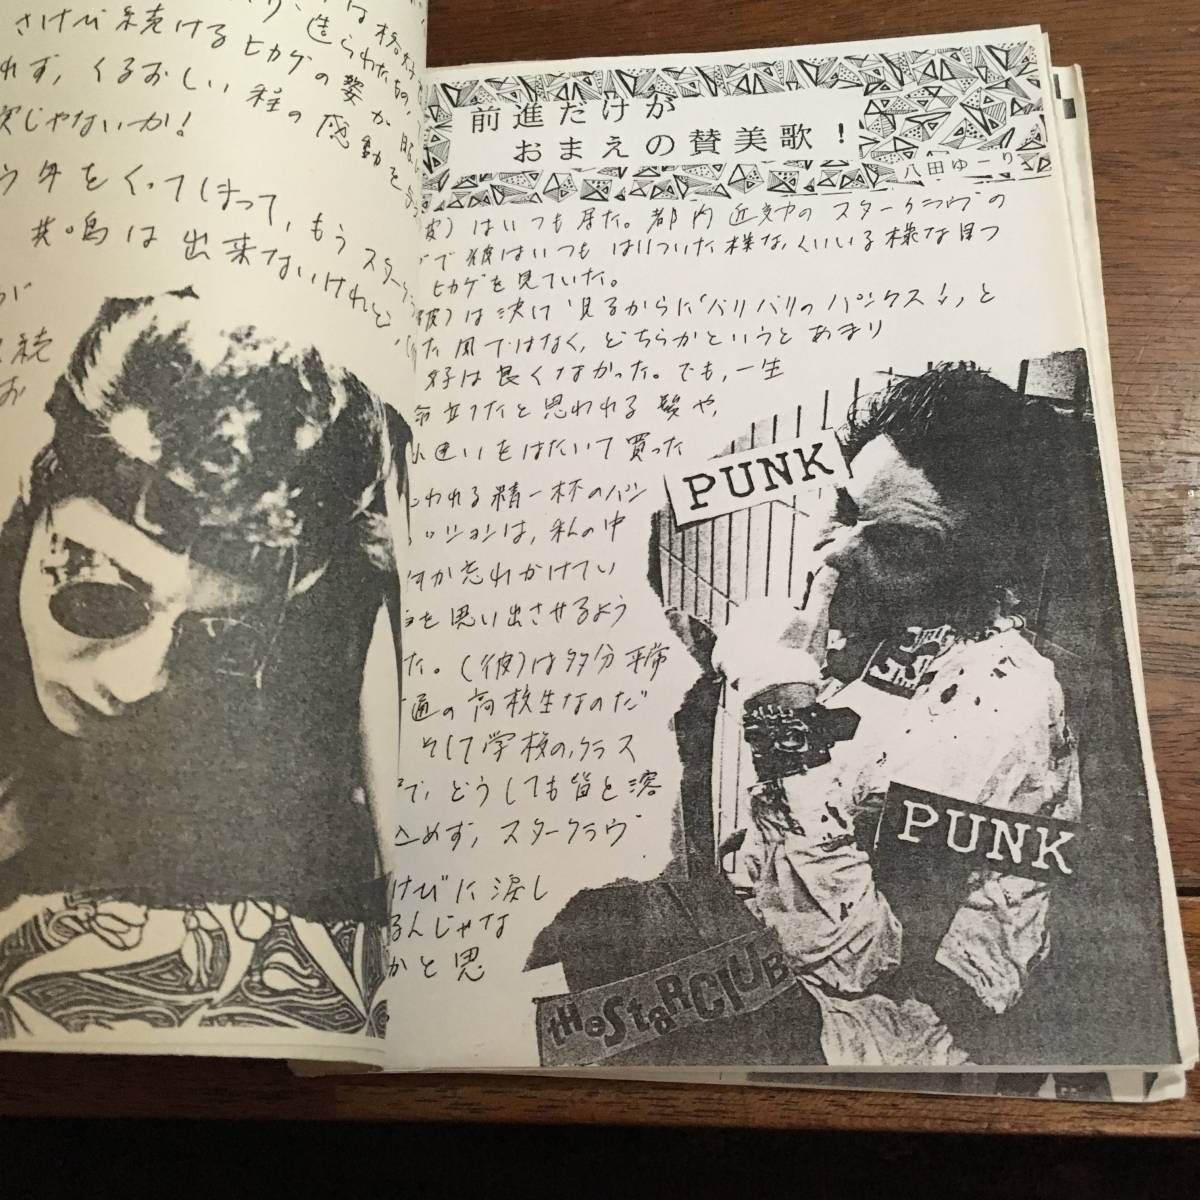 さけび続ける
れず,くるおしい程の感動を
ヒカゲの姿か
造られたもの
じゃないか!
う年をくってしまって,もうスターク
共鳴は出来ないけれど,
続
お
前進だけが
おまえの賛美歌!
八田ゆーり
彼)はいつも居た。都内近郊のスタークラヴの
で彼はいつもはりついた様な,くいいる様な目つ
ヒカゲを見ていた。
彼)は決して見るからに「バリバリのパンクス!」と
た風ではなく,どちらかというとあまり
好は良くなかった。でも,一生
立てたと思われる髪や,
遣いをはたいて買った
われる精一杯のパン
ッションは,私の中
何か忘れかけてい
を思い出させるよう
た。(彼)は多分普
通の高校生なのだ
そして学校のクラス
で,どうしても皆と溶
込めず,スタークラヴ
けびに涙し
るんじゃな
かと思
PUNK
PUNK
tHeStaRClUB